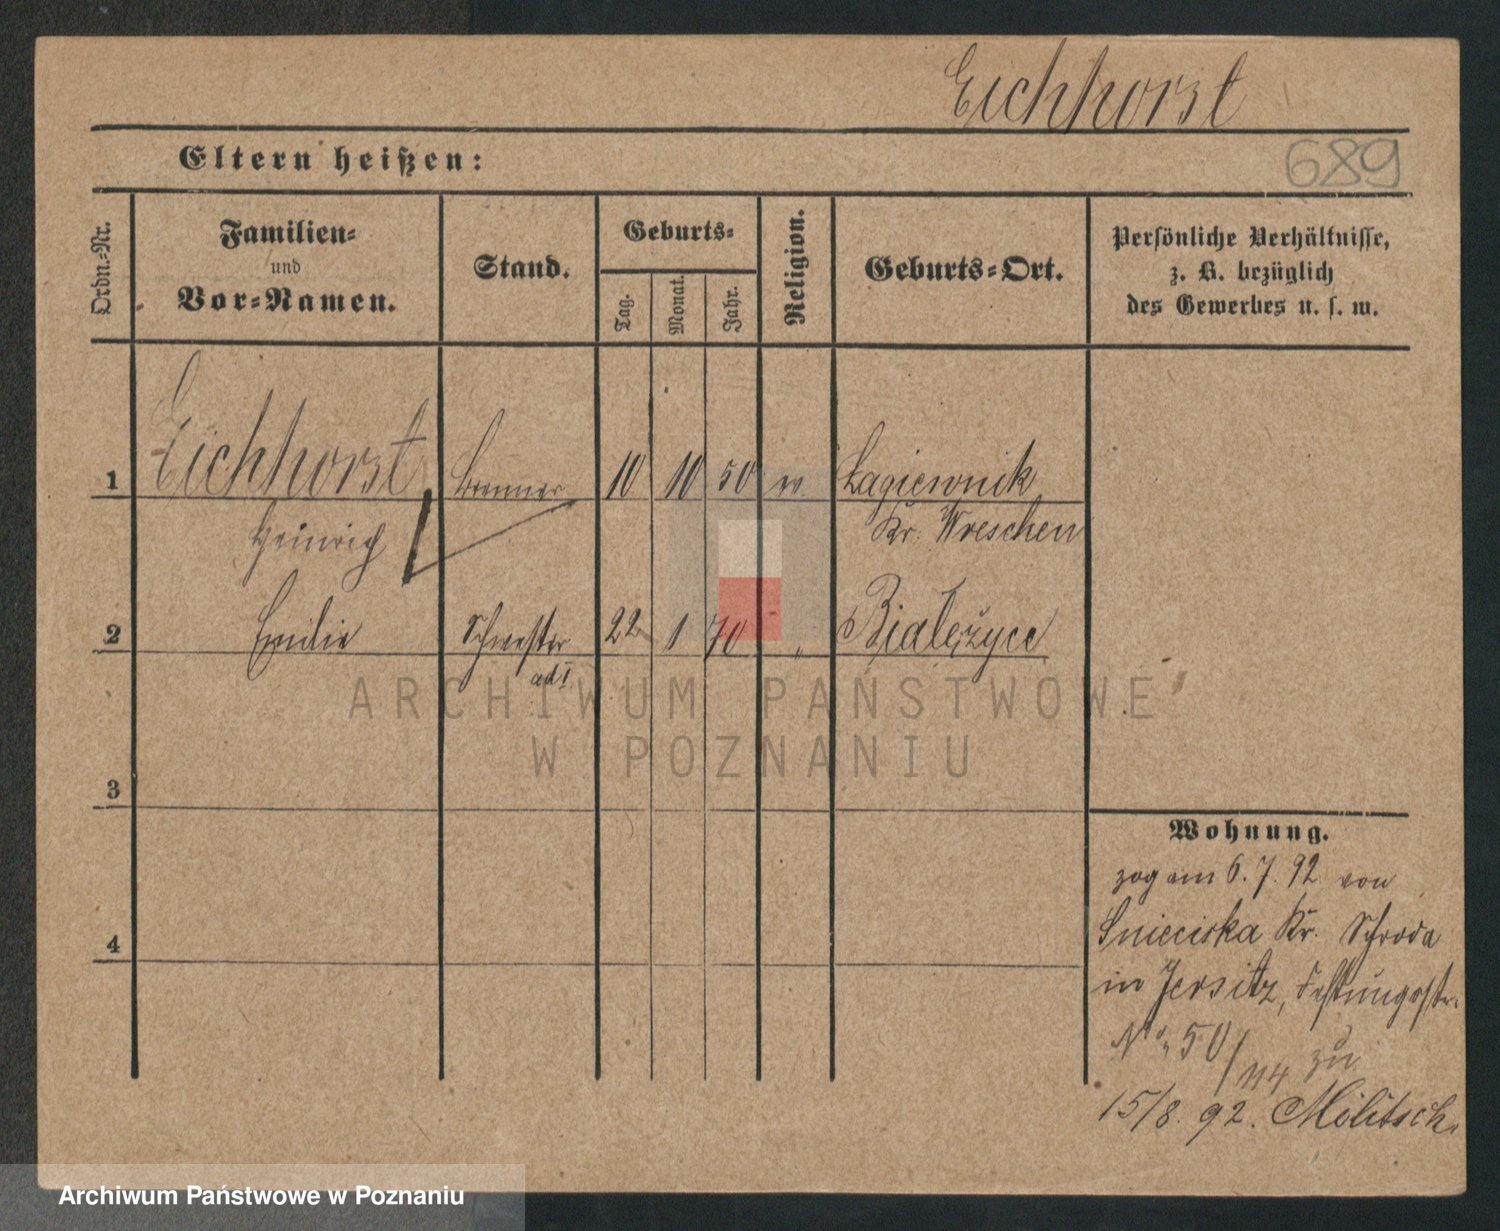 Eichhorst
Eltern heißen:
689
Ordn.-Nr.
Familien-
und
Vor-Namen.
Stand.
Geburts-
Tag.
Monat.
Jahr.
Religion.
Geburts-Ort.
Persönliche Verhältnisse,
z. B. bezüglich
des Gewerbes u. s. w.
1 Eichhorst Brenner 10 10 50 ev. Łagiewnik
Heinrich Kr. Wreschen
2 Emilie Schwester 22 1 70 „ Białężyce
ad I
ARCHIWUM PAŃSTWOWE
W POZNANIU
3
Wohnung.
zog am 6. 7. 92 von
Snieciska Kr. Schroda
4
in Jersitz, Festungsstr.
No. 50/114 zu
15/8. 92. Militsch.
Archiwum Państwowe w Poznaniu